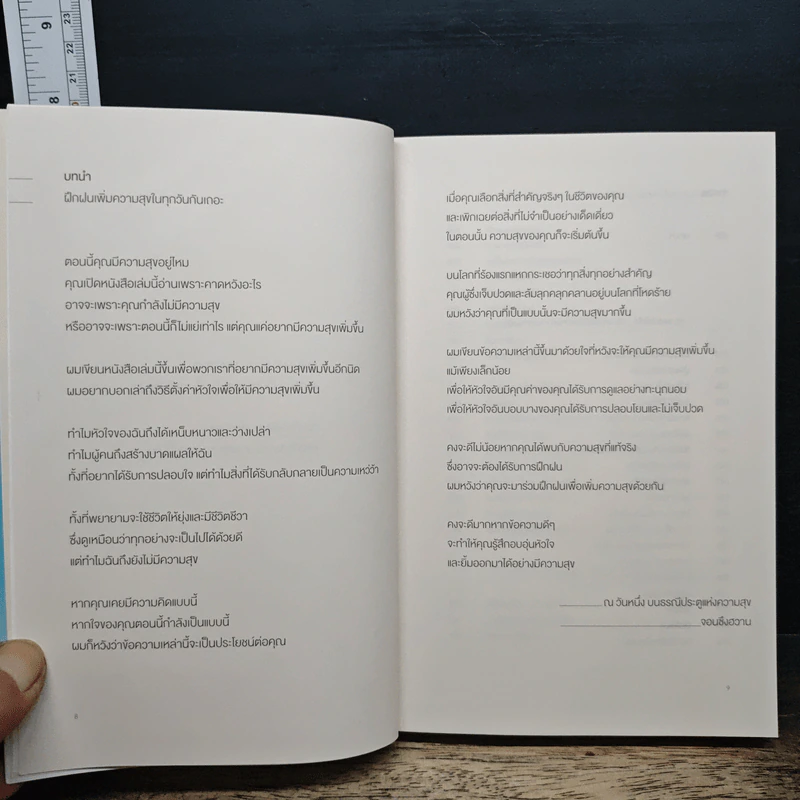 9
8
23
22
21
บทนำ
ฝึกฝนเพิ่มความสุขในทุกวันกันเถอะ
ตอนนี้คุณมีความสุขอยู่ไหม
คุณเปิดหนังสือเล่มนี้อ่านเพราะคาดหวังอะไร
อาจจะเพราะคุณกำลังไม่มีความสุข
หรืออาจจะเพราะตอนนี้ก็ไม่แย่เท่าไร แต่คุณแค่อยากมีความสุขเพิ่มขึ้น
ผมเขียนหนังสือเล่มนี้ขึ้นเพื่อพวกเราที่อยากมีความสุขเพิ่มขึ้นอีกนิด
ผมอยากบอกเล่าถึงวิธีตั้งค่าหัวใจเพื่อให้มีความสุขเพิ่มขึ้น
ทำไมหัวใจของฉันถึงได้เหน็บหนาวและว่างเปล่า
ทำไมผู้คนถึงสร้างบาดแผลให้ฉัน
ทั้งที่อยากได้รับการปลอบใจ แต่ทำไมสิ่งที่ได้รับกลับกลายเป็นความเหว่ว้า
ทั้งที่พยายามจะใช้ชีวิตให้ยุ่งและมีชีวิตชีวา
ซึ่งดูเหมือนว่าทุกอย่างจะเป็นไปได้ด้วยดี
แต่ทำไมฉันถึงยังไม่มีความสุข
หากคุณเคยมีความคิดแบบนี้
หากใจของคุณตอนนี้กำลังเป็นแบบนี้
ผมก็หวังว่าข้อความเหล่านี้จะเป็นประโยชน์ต่อคุณ
8
เมื่อคุณเลือกสิ่งที่สำคัญจริงๆ ในชีวิตของคุณ
และเพิกเฉยต่อสิ่งที่ไม่จำเป็นอย่างเด็ดเดี่ยว
ในตอนนั้น ความสุขของคุณก็จะเริ่มต้นขึ้น
บนโลกที่ร้องแรกแหกกระเชอว่าทุกสิ่งทุกอย่างสำคัญ
คุณผู้ซึ่งเจ็บปวดและล้มลุกคลุกคลานอยู่บนโลกที่โหดร้าย
ผมหวังว่าคุณที่เป็นแบบนั้นจะมีความสุขมากขึ้น
ผมเขียนข้อความเหล่านี้ขึ้นมาด้วยใจที่หวังจะให้คุณมีความสุขเพิ่มขึ้น
แม้เพียงเล็กน้อย
เพื่อให้หัวใจอันมีคุณค่าของคุณได้รับการดูแลอย่างทะนุถนอม
เพื่อให้หัวใจอันบอบบางของคุณได้รับการปลอบโยนและไม่เจ็บปวด
คงจะดีไม่น้อยหากคุณได้พบกับความสุขที่แท้จริง
ซึ่งอาจจะต้องได้รับการฝึกฝน
ผมหวังว่าคุณจะมาร่วมฝึกฝนเพื่อเพิ่มความสุขด้วยกัน
คงจะดีมากหากข้อความดีๆ
จะทำให้คุณรู้สึกอบอุ่นหัวใจ
และยิ้มออกมาได้อย่างมีความสุข
ณ วันหนึ่ง บนธรณีประตูแห่งความสุข
จอนซึงฮวาน
9